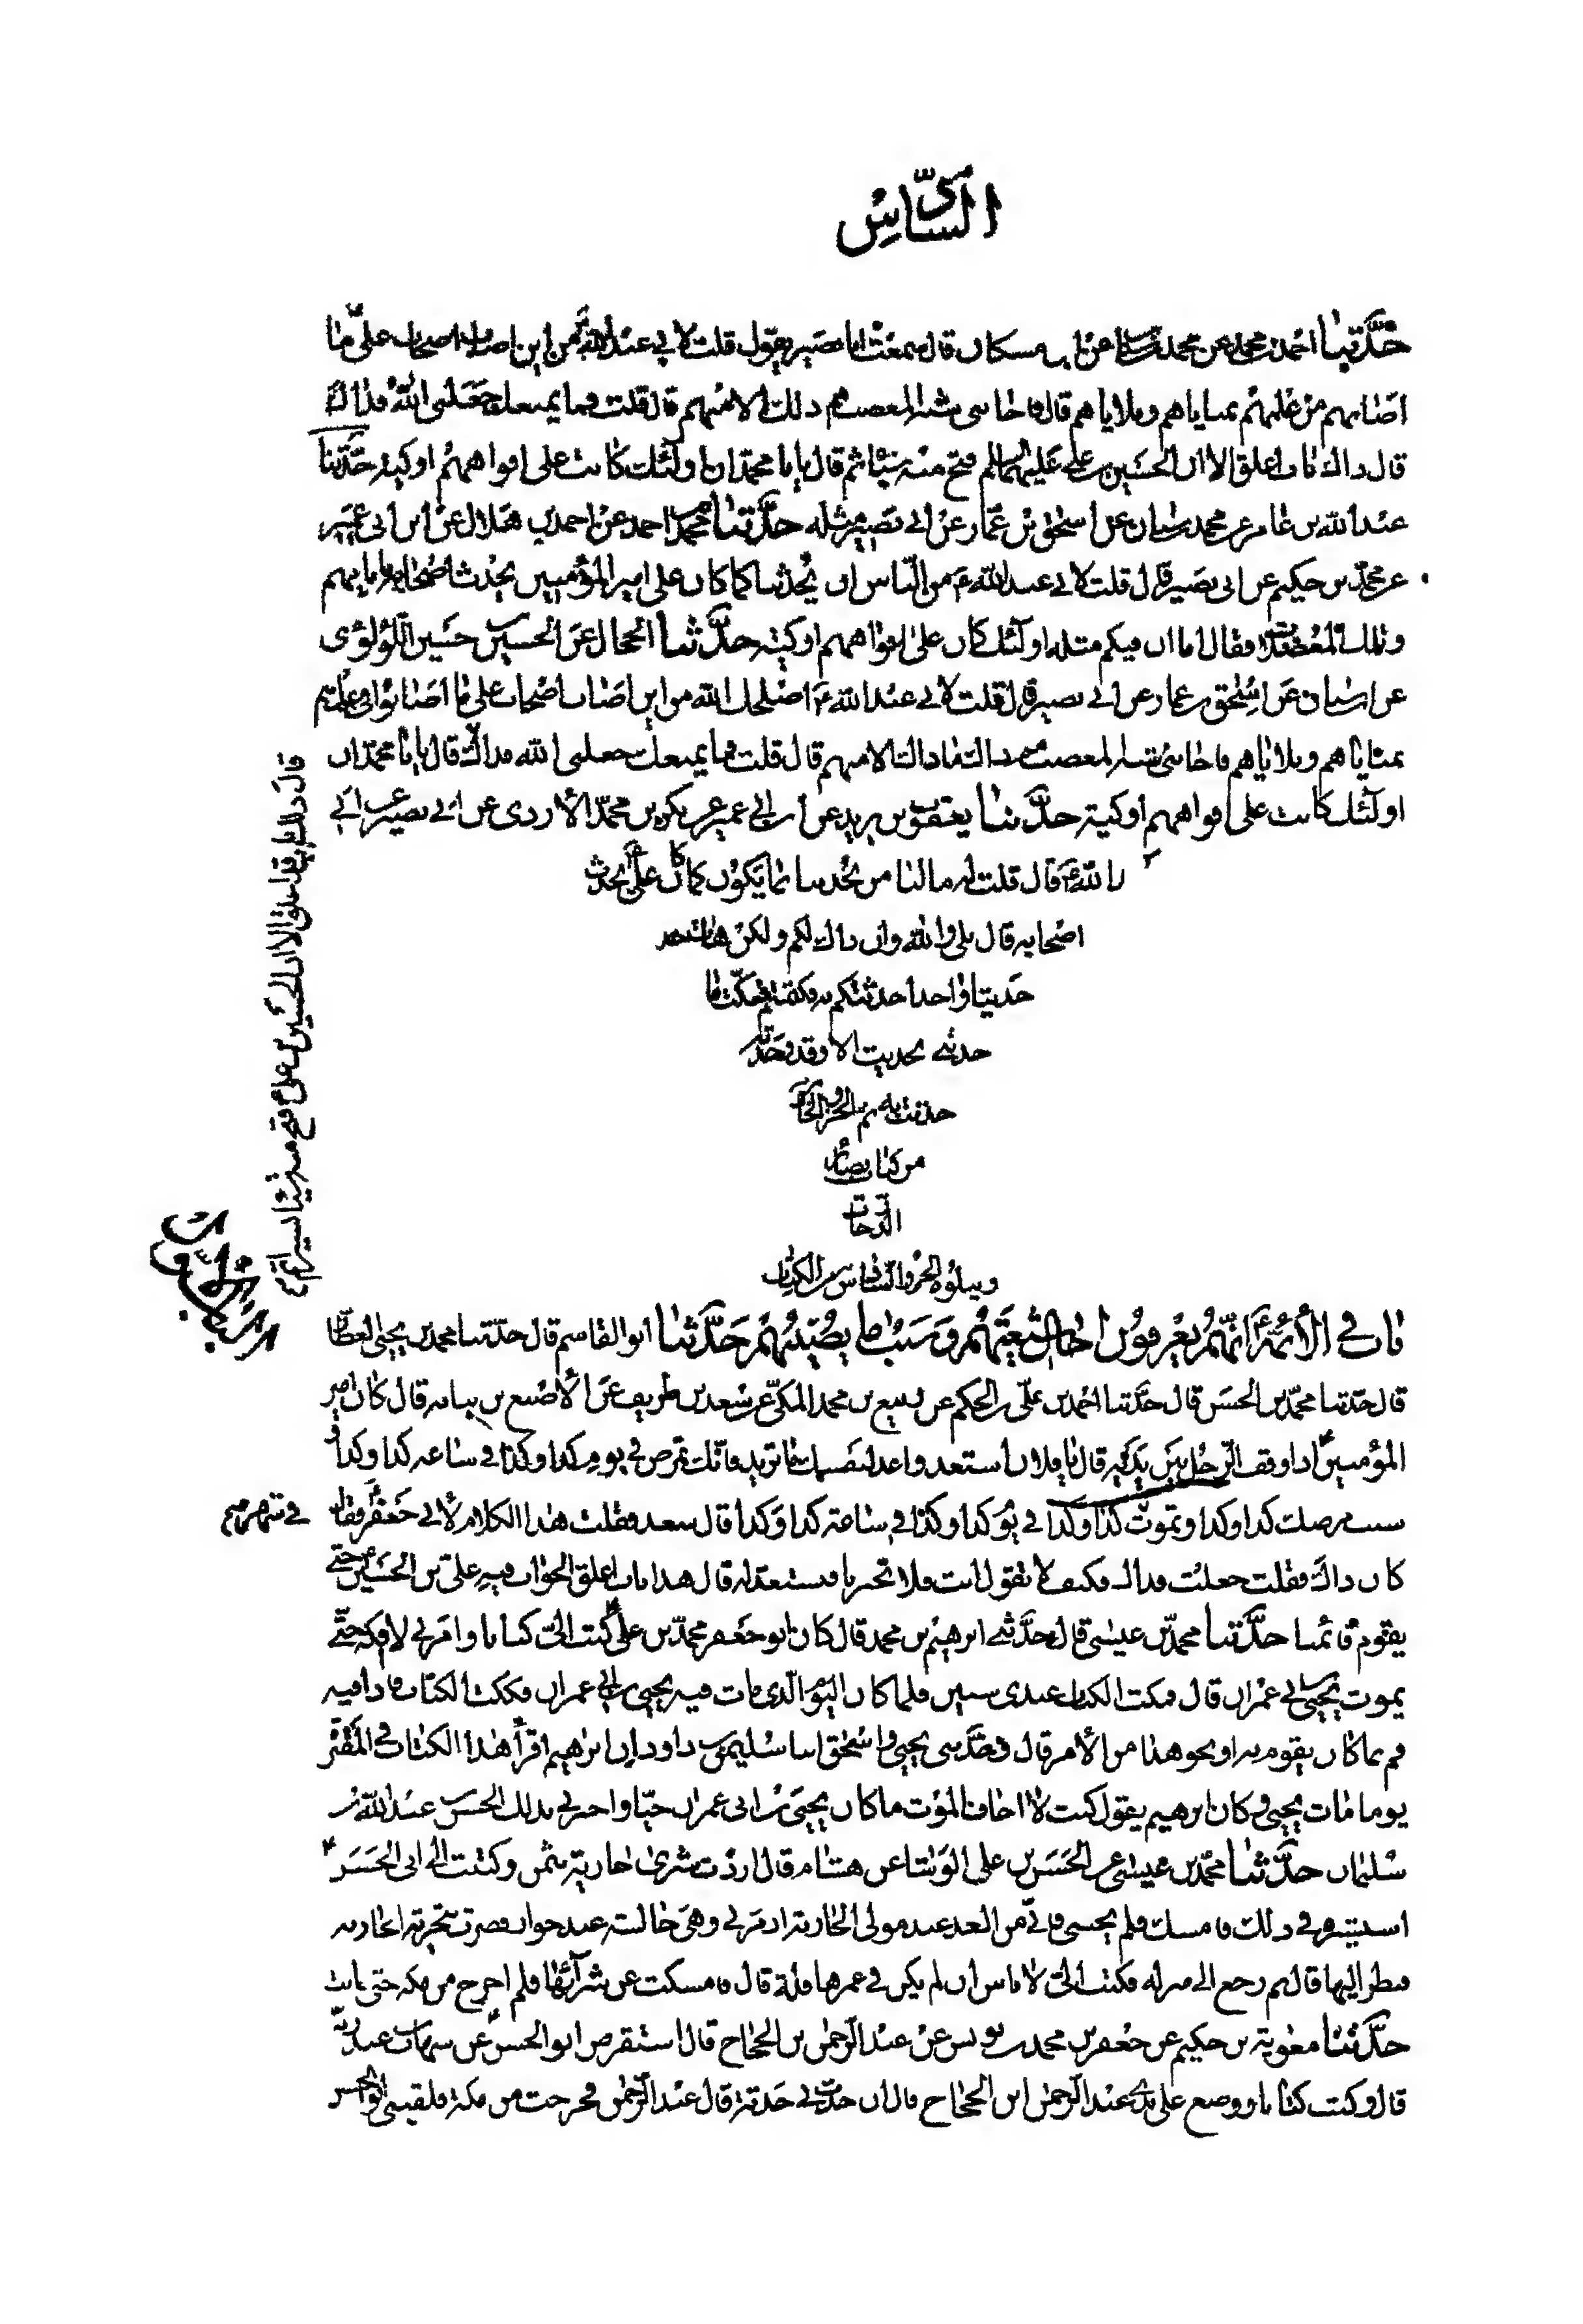 السادس
حدثنا احمد بن محمد عن محمد بن سنان عن ابن مسكان قال سمعت ابا بصير يقول قلت لابي عبد الله ع من اين اصاب اصحاب علي ما
اصابهم من علمهم بمناياهم وبلاياهم قال فاجابني شبه المغضب مم ذلك الا منهم قال قلت فما يمنعك جعلني الله فداك
قال ذاك باب اغلق الا ان الحسين بن علي عليهما السلم فتح منه شيئا ثم قال يا با محمد ان اولئك كانت على افواههم اوكية حدثنا
عبد الله بن عامر عن محمد بن سنان عن اسحق بن عمار عن ابي بصير مثله حدثنا محمد بن احمد عن احمد بن هلال عن ابن ابي عمير
عن محمد بن حكيم عن ابي بصير قال قلت لابي عبد الله ع من الناس ان يحدثنا كما كان علي امير المؤمنين يحدث اصحابه باياهم
وتلك المعضلات فقال اما ان فيكم مثله اولئك كان على افواههم اوكية حدثنا الحجال عن الحسن بن حسين اللؤلؤي
عن ابن سنان عن اسحق بن عمار عن ابي بصير قال قلت لابي عبد الله ع اصلحك الله من اين اصاب اصحاب علي ما اصابوا من علمهم
بمناياهم وبلاياهم فاجابني شبه المغضب مم ذاك الا منهم قال قلت فما يمنعك جعلني الله فداك قال يا با محمد ان
اولئك كانت على افواههم اوكية حدثنا يعقوب بن يزيد عن ابن ابي عمير عن بكر بن محمد الازدي عن ابي بصير عن ابي
عبد الله ع قال قلت له ما لنا من يحدثنا بما يكون كما كان علي ع يحدث
اصحابه قال بلى والله وان ذاك لكم ولكن هات
حديثا واحدا حدثتكم به فكتمتم فسكت فما
حدثني بحديث الا وقد وجدته
حدثت به تم الجزو الخامس
من كتاب بصائر
الدرجات
ويتلوه الجزو السادس من الكتاب
باب في الائمة ع انهم يعرفون اجال شيعتهم وسبب ما يصيبهم حدثنا ابو القاسم قال حدثنا محمد بن يحيى العطار
قال حدثنا محمد بن الحسن قال حدثنا احمد بن علي بن الحكم عن ربيع بن محمد المكي عن سعد بن طريف عن الاصبغ بن نباته قال كان امير
المؤمنين ع اذا وقف الرجل بين يديه قال يا فلان استعد واعد لنفسك ما تريد فانك تمرض في يوم كذا وكذا في ساعه كذا وكذا و
سبب مرضك كذا وكذا وتموت في يوم كذا وكذا في ساعة كذا وكذا قال سعد فقلت هذا الكلام لابي جعفر ع فقال
في شهر
كان ذاك فقلت جعلت فداك فكيف لا تقول انت فلا تخبرنا فنستعد له قال هذا باب اغلق الجواب فيه علي بن الحسين ع حتى
يقوم قائمنا حدثنا محمد بن عيسى قال حدثني ابرهيم بن محمد قال كان ابو جعفر محمد بن علي ع كتب الي كتابا وامرني لا افكه حتى
يموت يحيى بن ابي عمران قال فمكث الكتاب عندي سنين فلما كان اليوم الذي مات فيه يحيى بن ابي عمران فككت الكتاب فاذا فيه
قم بما كان يقوم به او نحو هذا من الامر قال وحدثني يحيى واسحق ابنا سليمن بن داود ان ابرهيم اقرا هذا الكتاب في المقبرة
يوما مات يحيى وكان ابرهيم يقول كنت لا اخاف الموت ما كان يحيى بن ابي عمران حيا واخبرني بذلك الحسن بن عبد الله بن
سليمان حدثنا محمد بن عيسى عن الحسن بن علي الوشا عن هشام قال اردت شرى جارية بثمن وكتبت الى ابي الحسن ع
استشيره في ذلك فامسك فلم يجبني فاني من الغد عند مولى الجارية اذ مر بي وهي جالسة عند جوار فصرت بتجربة الجارية
فنظر اليها قال ثم رجع الى منزله فكتب الي لا باس ان لم يكن في عمرها قلة قال فامسكت عن شرائها فلم اخرج من مكه حتى ماتت
حدثنا معوية بن حكيم عن جعفر بن محمد بن يونس عن عبد الرحمن بن الحجاج قال استقرض ابو الحسن ع عن شهاب بن عبد ربه
قال وكتب كتابا ووضع على يدي عبد الرحمن ابن الحجاج قال ان حدث بي حدث قال عبد الرحمن فخرجت من مكة فلقيني ابو الحسن
قال ذلك باب اغلق الا ان الحسين بن علي ع فتح منه شيئا يسيرا